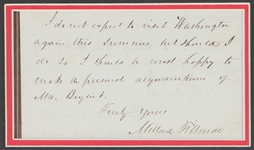 I do not expect to visit Washington
again this summer but should I
do so I should be most happy to
make the personal acquaintance of
Mr. Bryant.
Truly Yours
Millard Fillmore